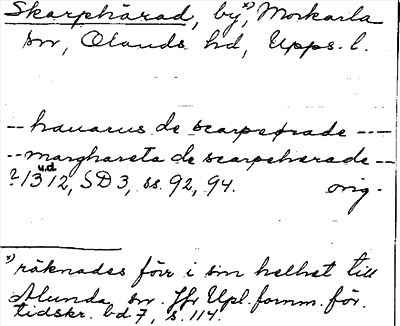 Skarphärad, by,ˣ⁾ Morkarla
sn, Olands hd, Upps. l.
-- hauarus de scarpeprade ---
-- marghareta de scarpeherade --
? u.d. 1312, SD 3, ss. 92, 94. orig.
ˣ⁾ räknades förr i sin helhet till
Alunda sn. Jfr Upl. fornm. för.
tidskr. bd 7, s. 114.